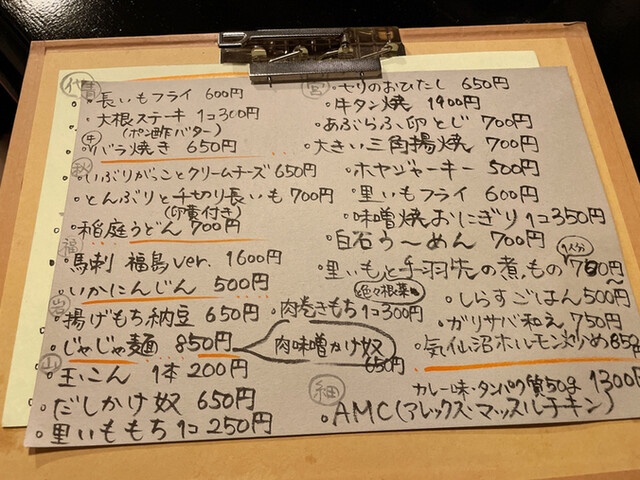 青
長いもフライ 600円
大根ステーキ 1コ300円
(ポン酢バター)
牛バラ焼き 650円
秋
いぶりがっことクリームチーズ 650円
とんぶりと千切り長いも 700円
(卵黄付き)
稲庭うどん 700円
福
馬刺 福島ver. 1600円
いかにんじん 500円
岩
揚げもち納豆 650円
じゃじゃ麺 850円
肉味噌かけ奴
650円
山
玉こん 1本 200円
だしかけ奴 650円
里いももち 1コ 250円
肉巻きもち 1コ300円
宮
セリのおひたし 650円
牛タン焼 1400円
あぶらふ、卵とじ 700円
大きい三角揚焼 700円
ホヤジャーキー 500円
里いもフライ 600円
味噌焼おにぎり 1コ350円
白石う〜めん 700円
1人分
里いもと手羽先の煮もの 750円
色々根菜
しらすごはん 500円
ガリサバ和え 750円
気仙沼ホルモン炒め 850
細
カレー味・タンパク質50g 1300円
AMC(アレックス・マッスルチキン)